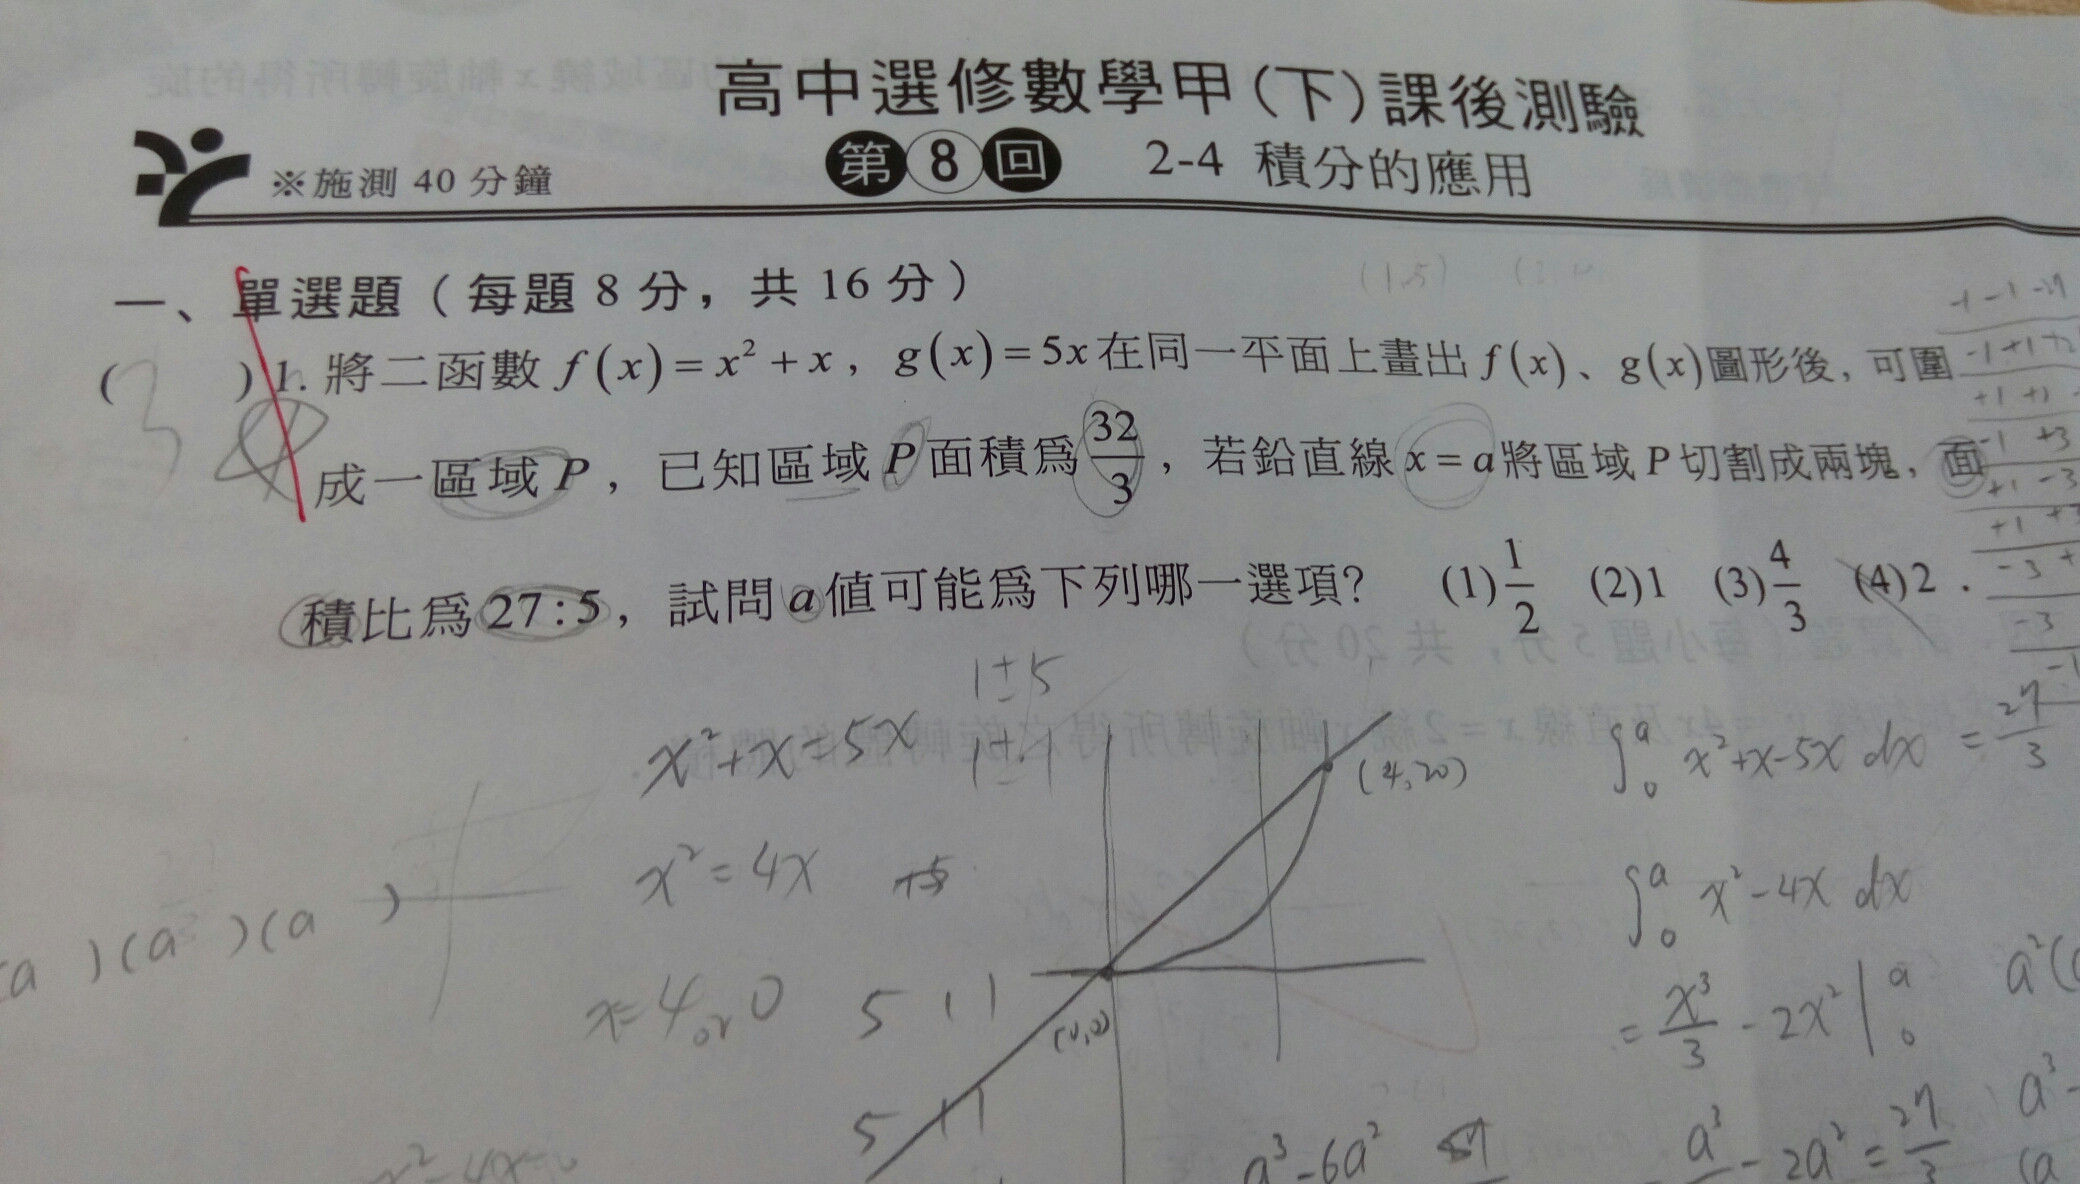 高中選修數學甲(下)課後測驗
※施測 40 分鐘 第 8 回 2-4 積分的應用
一、單選題（每題 8 分，共 16 分）
( 3 ) 1. 將二函數 f(x)=x²+x，g(x)=5x 在同一平面上畫出 f(x)、g(x)圖形後，可圍
成一區域 P，已知區域 P 面積為 32/3，若鉛直線 x=a 將區域 P 切割成兩塊，面
積比為 27:5，試問 a 值可能為下列哪一選項? (1) 1/2 (2) 1 (3) 4/3 (4) 2．
1±5
1±1
x²+x=5x
x²=4x
x=4 or 0
(4,20)
(0,0)
5 1 1
5 1 1
∫₀ᵃ x²+x-5x dx = 27/3
∫₀ᵃ x²-4x dx
= x³/3 - 2x² |₀ᵃ
a³-6a²
a³ - 2a² = 27/3
(a )(a )(a )